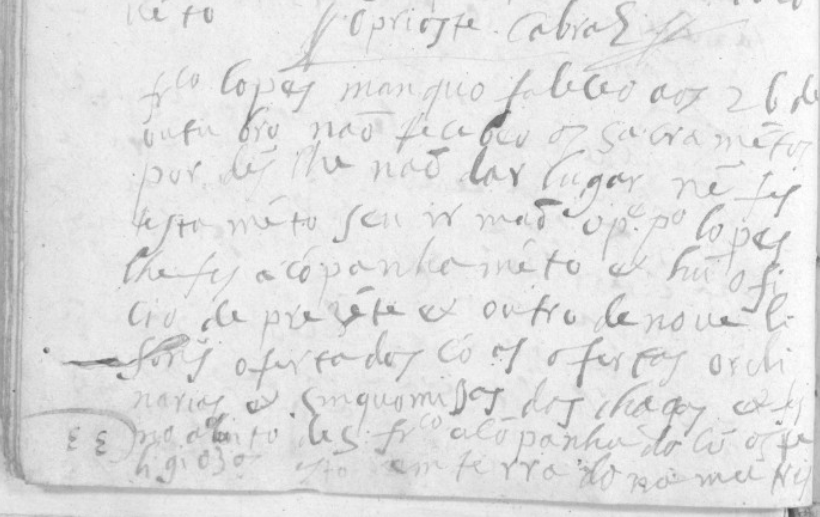 o prioste. Cabral
fr.co lopes manquo faleceo aos 26 de
outubro não reçebeo os sacramētos
por des lhe não dar lugar nē fes
testamēto seu irmaõ o p.e p.o lopes
lhe fes acōpanhamēto & hū ofi
cio de prezēte & outro de noue li
soñs ofertados cō as ofertas ordi
narias & sinquo missas das chagas &
abito de s. fr.co acōpanhado cō os re
ligiozos emterrado na matris